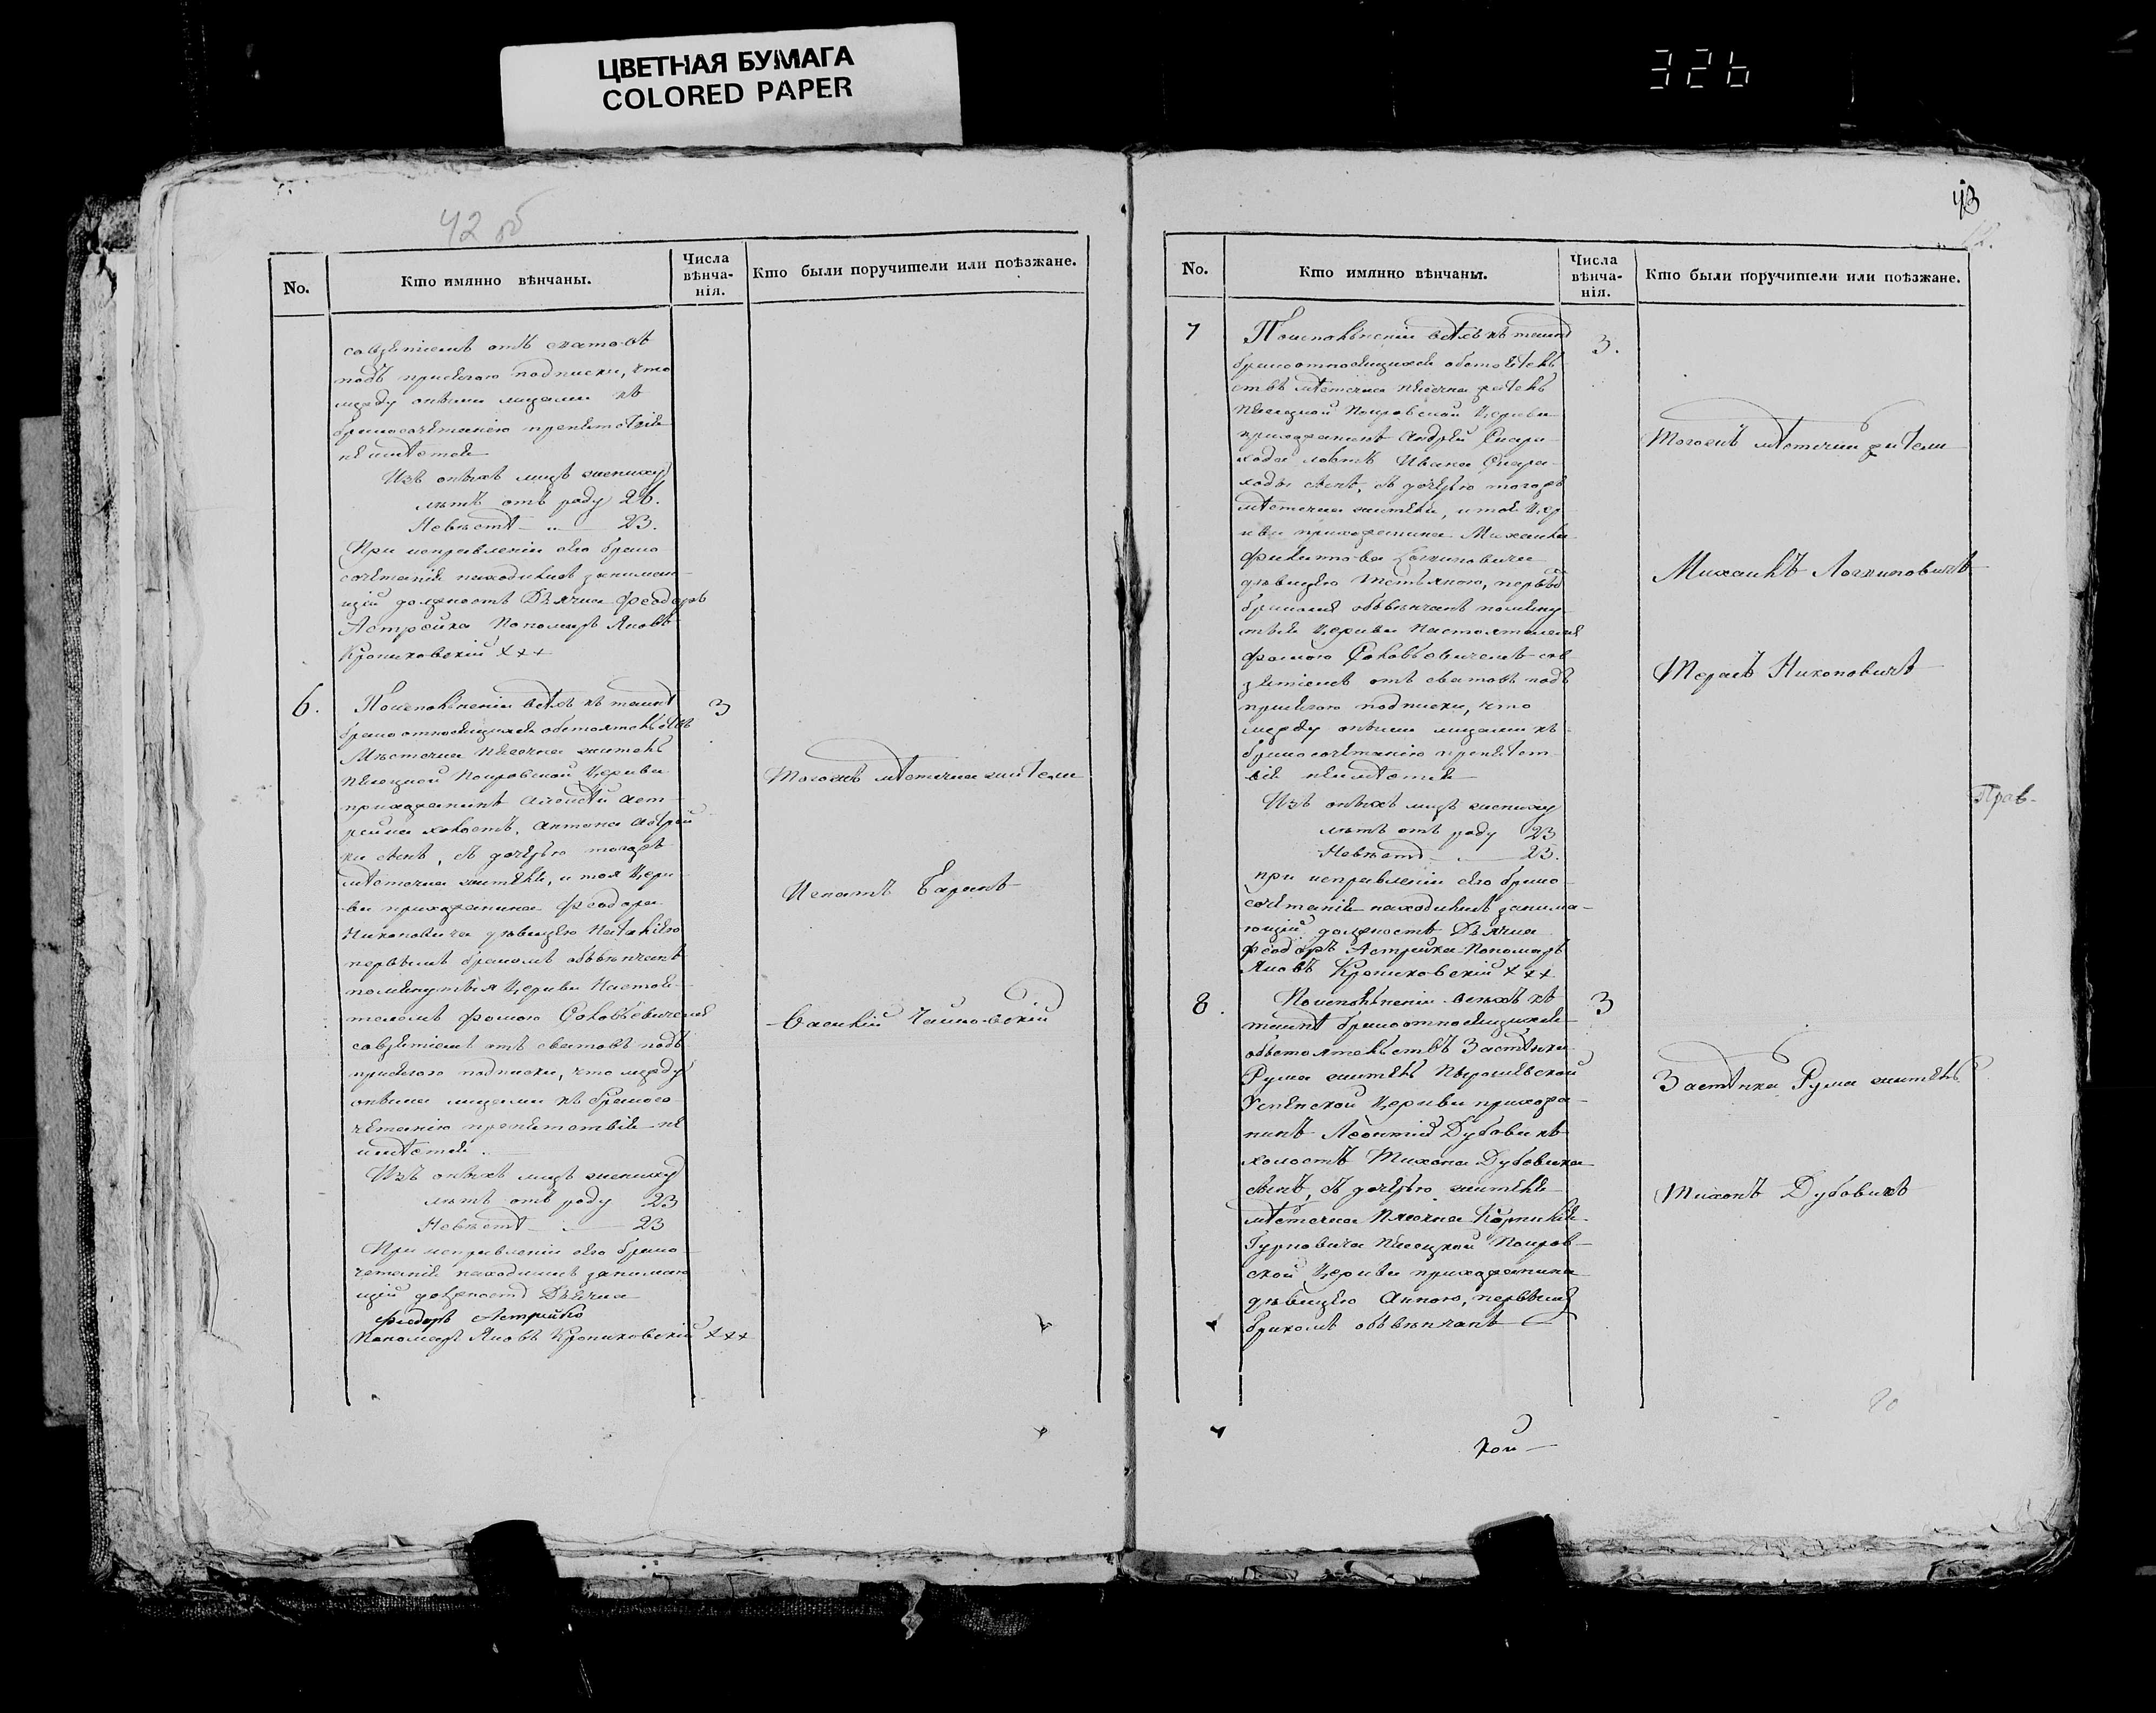 ЦВЕТНАЯ БУМАГА
COLORED PAPER
326
42 об
No.
Кто имянно вѣнчаны.
Числа вѣнча-нія.
Кто были поручители или поѣзжане.
совзятіемъ отъ сватовъ
подъ присягою подписки, что
между оными лицами къ
бракосочетанію препятствія
неимѣется
Изъ оныхъ лицъ жениху
лѣтъ отъ роду 26.
Невѣстѣ — " — 23.
При исправленіи сего брако
сочетанія находился занимаю-
щій должность Дьячка Феодоръ
Астрейка Пономарь Яковъ
Крониковскій ххх
6.
Поисполненіи всѣхъ къ таинѣ
брака относящихся обстоятельствъ
Мѣстечка Пясечна житель
Пясецкой Покровской Церкви
прихожанинъ Алексѣй Аст-
рейка холостъ, Антона Астрей-
ки сынъ, съ дочерью тогожъ
мѣстечка жителя, и тоя Церк-
ви прихожанина Феодора
Никоновича дѣвицею Наталіею
первымъ бракомъ обвѣнчанъ
помянутыя Церкви Настоя-
телемъ Фомою Соловьевичемъ
совзятіемъ отъ сватовъ подъ
присягою подписки, что между
оными лицами къ бракосо-
четанію препятствія не
имѣется.
Изъ оныхъ лицъ жениху
лѣтъ отъ роду 23
Невѣстѣ — 23
При исправленіи сего брако-
четанія находился занимаю
щій должность Дьячка
Феодоръ Астрейко
Пономарь Яковъ Крониковскій ххх
3
Тогожъ мѣстечка жители
Игнатъ Баранъ
Василій Чайковскій
43
No.
Кто имянно вѣнчаны.
Числа вѣнча-нія.
Кто были поручители или поѣзжане.
7
Поисполненіи всѣхъ къ таинѣ
брака относящихся обстоятель-
ствъ мѣстечка Пясечна житель
Пясецкой Покровской Церкви
прихожанинъ Андрей Скари-
ходы сынъ, съ дочерью тогожъ
мѣстечка жителя, и тоя Цер-
кви прихожанина Михаила
дѣвицею Татьяною, первымъ
бракомъ обвѣнчанъ помяну-
тыя Церкви Настоятелемъ
Фомою Соловьевичемъ сов-
зятіемъ отъ сватовъ подъ
присягою подписки, что
между оными лицами къ
бракосочетанію препятст-
вія неимѣется
Изъ оныхъ лицъ жениху
лѣтъ отъ роду 23
Невѣстѣ — 23.
при исправленіи сего брако-
сочетанія находился занима-
ющій должность Дьячка
Феодоръ Астрейка Пономарь
Яковъ Крониковскій ххх
3.
Тогожъ мѣстечка жители
Михаилъ Логгиновичъ
Герасъ Никоновичъ
Прав-
8.
Поисполненіи всѣхъ къ
таинѣ брака относящихся
обстоятельствъ Застѣнка
Рума житель Пырашевской
Успенской Церкви прихожа-
нинъ Леонтій Дубовикъ
холостъ Тихона Дубовика
сынъ, съ дочерью жителя
мѣстечка Пясечна Корнилія
Гурновича Пясецкой Покров-
ской Церкви прихожанина
дѣвицею Анною, первымъ
бракомъ обвѣнчанъ
3
Застѣнка Рума житель
Тихонъ Дубовикъ